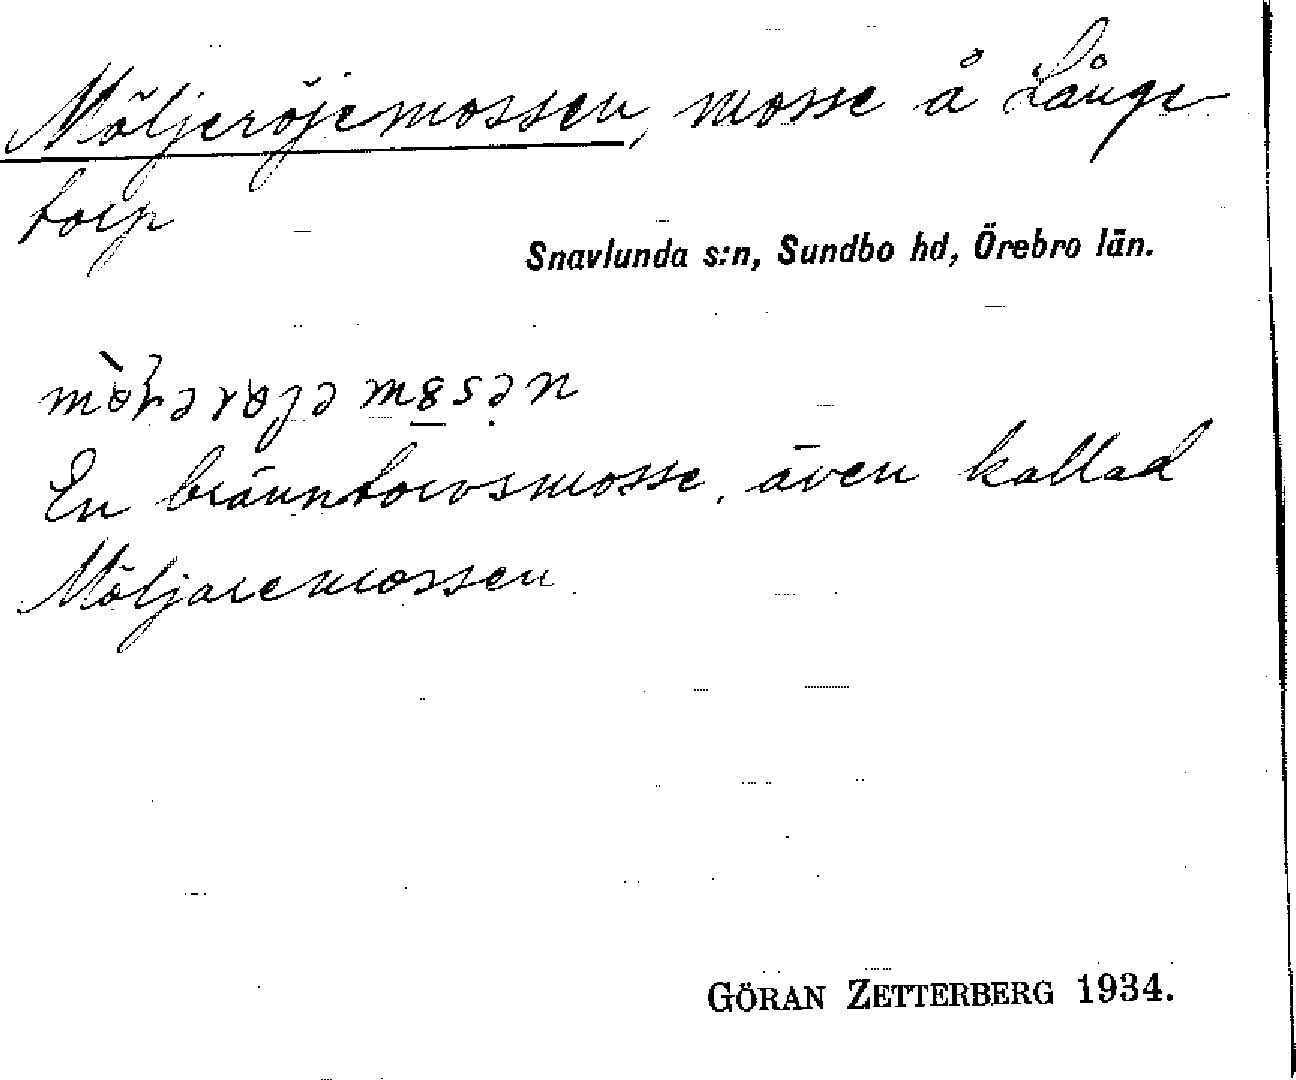 Möljeröjemossen, mosse å Långe-
torp
Snavlunda s:n, Sundbo hd, Örebro län.
En bränntorvsmosse, även kallad
Möljaremossen
GÖRAN ZETTERBERG 1934.